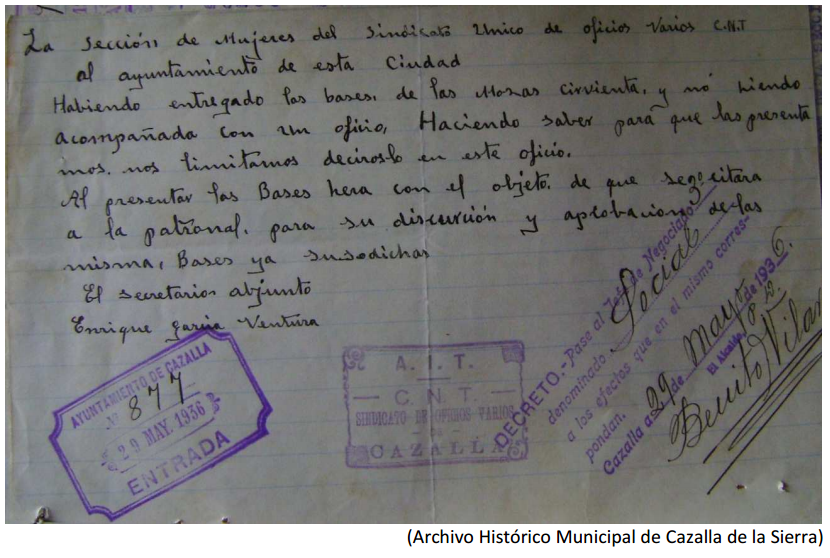 La Sección de Mujeres del Sindicato Unico de oficios Varios C.N.T
al ayuntamiento de esta Ciudad
Habiendo entregado las bases, de las Mosas Cirvienta, y nó siendo
acompañada con un oficio, Haciendo saber para que las presenta
mos, nos limitamos deciroslo en este oficio.
Al presentar las Bases hera con el objeto, de que se citara
a la patronal, para su discurción y aprobacion de las
misma, Bases ya susodichas
El secretarios abjunto
Enrique garcia Ventura
AYUNTAMIENTO DE CAZALLA
Nº 877
29 MAY. 1936
ENTRADA
A. I. T.
C. N. T.
SINDICATO DE OFICIOS VARIOS
CAZALLA
DECRETO.- Pase al Jefe de Negociado
denominado Social
a los efectos que en el mismo corres-
pondan.
Cazalla a 29 de Mayo de 1936.
El Alcalde
Benito Vilar
(Archivo Histórico Municipal de Cazalla de la Sierra)